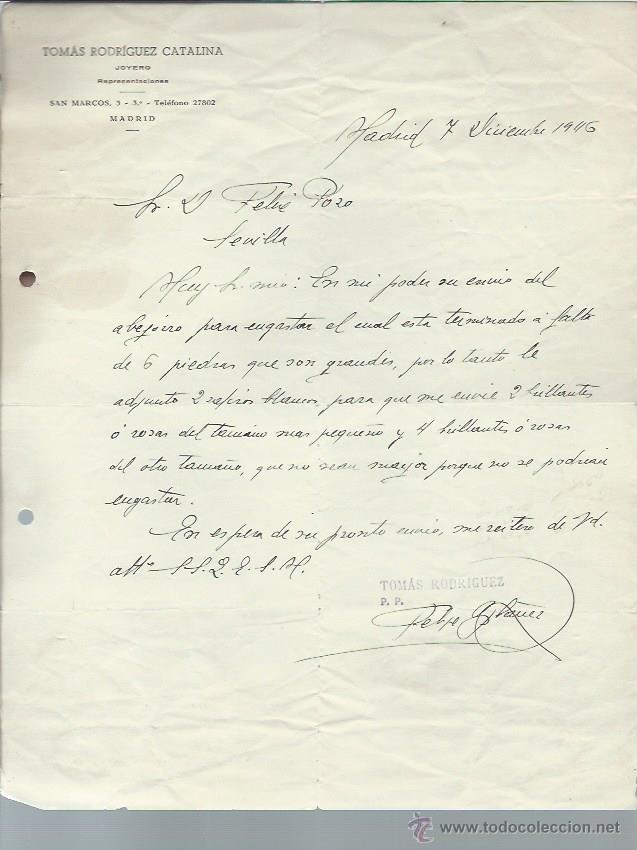 TOMÁS RODRÍGUEZ CATALINA
JOYERO
Representaciones
SAN MARCOS, 3 - 3.º - Teléfono 27802
MADRID
Madrid 7 Diciembre 1946
Sr. D Felix Pozo
Sevilla
Muy Sr. mio: En mi poder su envio del
abejorro para engastar el cual esta terminado a falta
de 6 piedras que son grandes, por lo tanto le
adjunto 2 zafiros blancos, para que me envie 2 brillantes
ó rosas del tamaño mas pequeño y 4 brillantes ó rosas
del otro tamaño, que no sean mayor porque no se podrian
engastar.
En espera de su pronto envio, me reitero de Vd.
atto S.S.Q.E.S.M.
TOMÁS RODRIGUEZ
P. P.
Felipe
www.todocoleccion.net